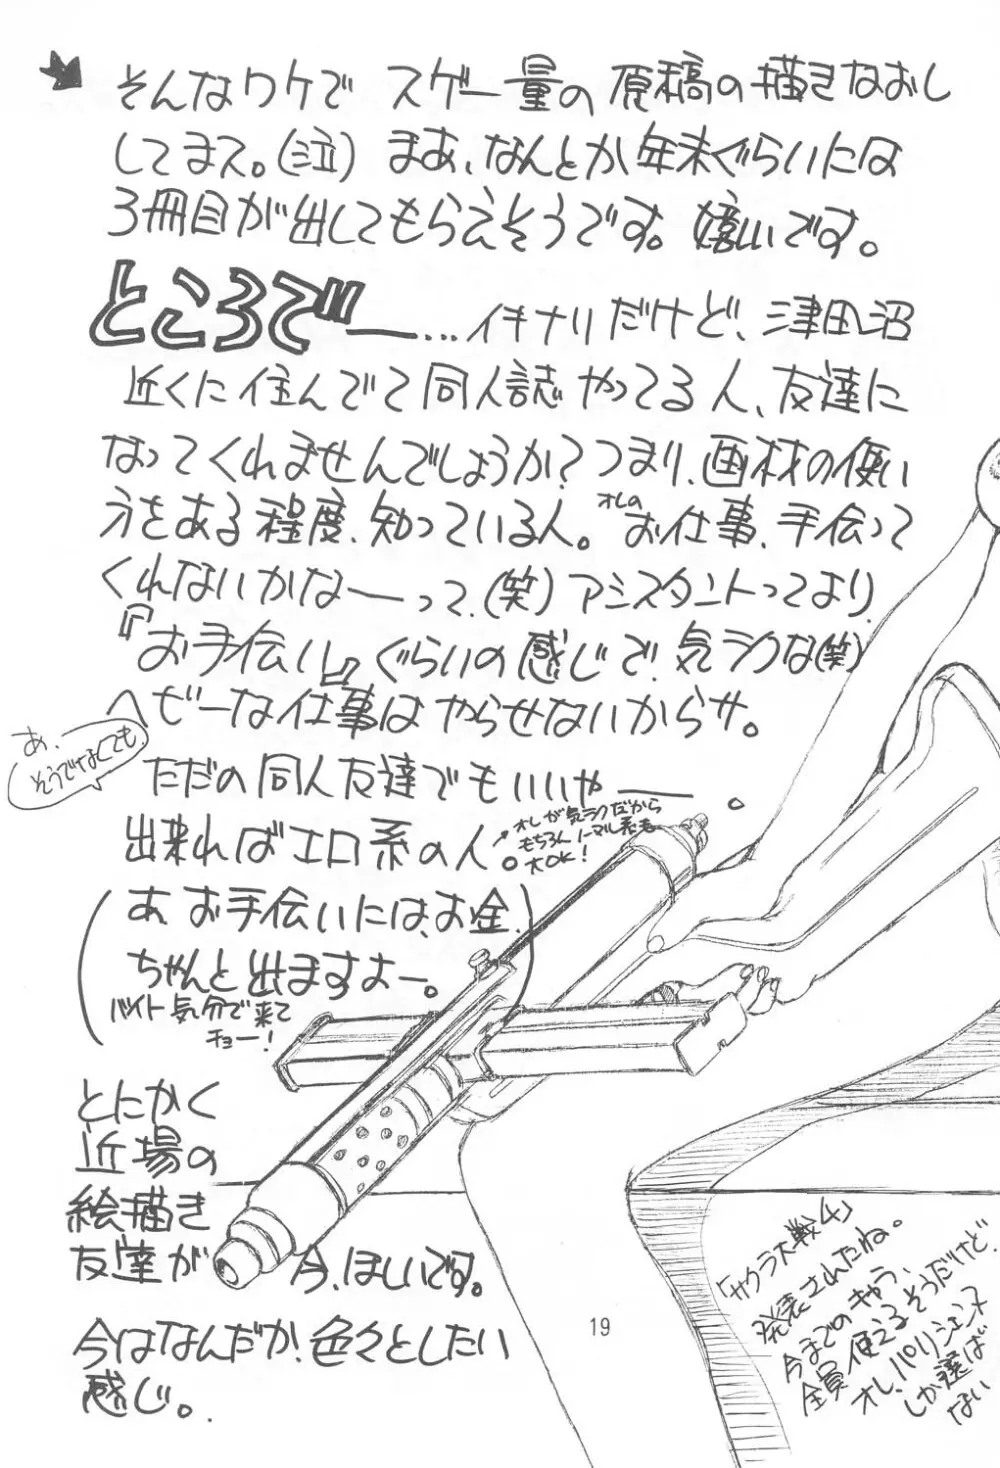 そんなワケで スゲー量の原稿の描きなおし
してまス。(泣) まあ、なんとか年末ぐらいには
3冊目が出してもらえそうです。嬉しいです。
ところでー...イキナリだけど、津田沼
近くに住んでて同人誌やってる人、友達に
なってくれませんでしょうか?つまり、画材の使い
方をある程度、知っている人。オレのお仕事、手伝って
くれないかなーって、(笑)アシスタントってより、
『お手伝い』ぐらいの感じで、気ラクな(笑)
ヘビーな仕事はやらせないからサ。
あ、ー
そうでなくても、
ただの同人友達でもいいやー。
出来ればエロ系の人。
オレが気ラクだから
もちろんノーマル系も
大OK!
(あ、お手伝いには、お金、
ちゃんと出ますよー。)
バイト気分で来て
チョー!
とにかく
近場の
絵描き
友達が 今、ほしいです。
今はなんだか、色々としたい
感じ。
19
「サクラ大戦4」
発表されたね。
今までのキャラ、
全員使えるそうだけど、
オレ、パリジェンヌ
しか選ば
ない